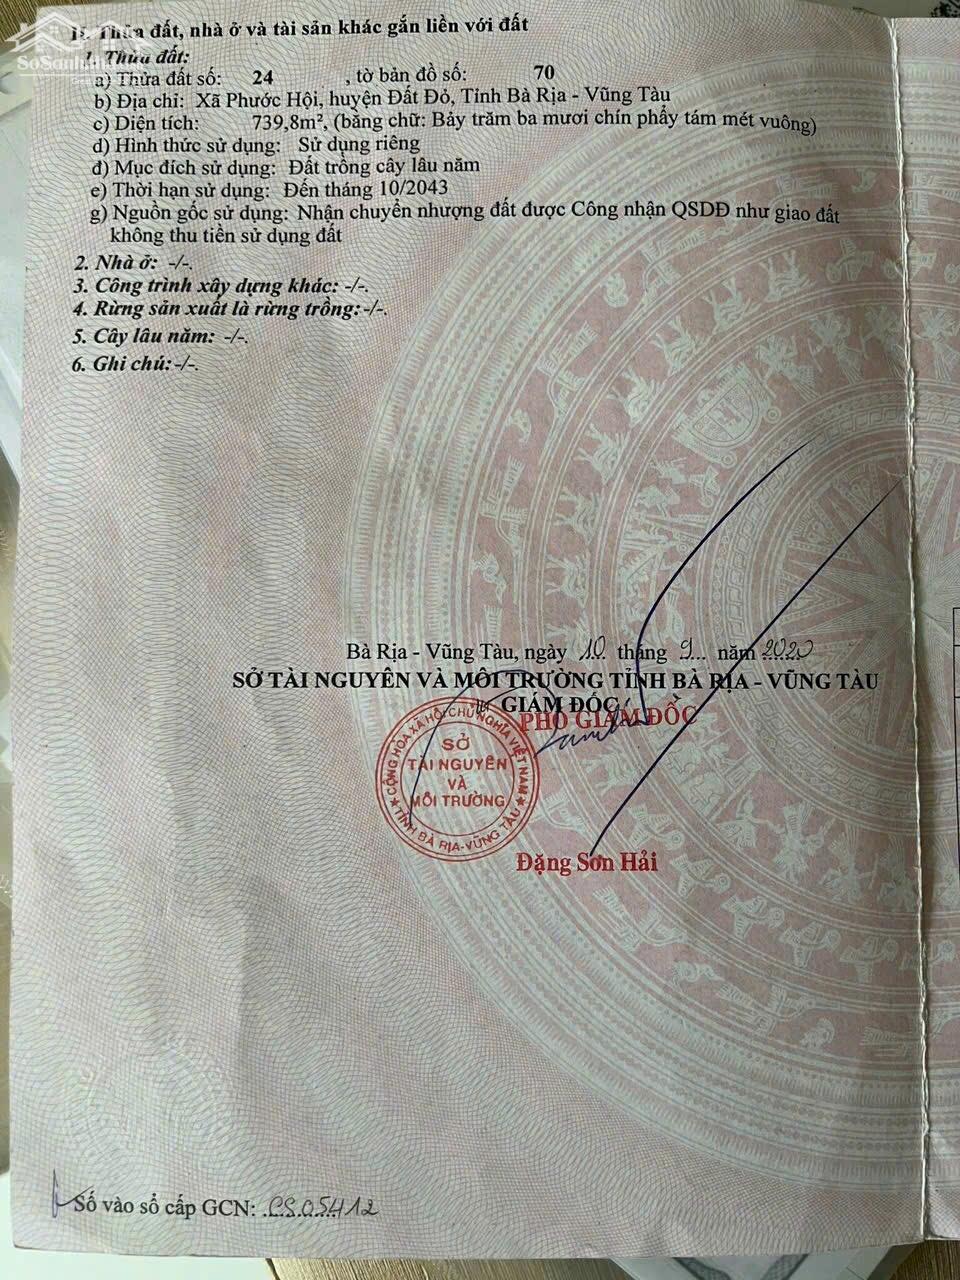 II. Thửa đất, nhà ở và tài sản khác gắn liền với đất
1. Thửa đất:
a) Thửa đất số: 24 , tờ bản đồ số: 70
b) Địa chỉ: Xã Phước Hội, huyện Đất Đỏ, Tỉnh Bà Rịa - Vũng Tàu
c) Diện tích: 739,8m², (bằng chữ: Bảy trăm ba mươi chín phẩy tám mét vuông)
d) Hình thức sử dụng: Sử dụng riêng
đ) Mục đích sử dụng: Đất trồng cây lâu năm
e) Thời hạn sử dụng: Đến tháng 10/2043
g) Nguồn gốc sử dụng: Nhận chuyển nhượng đất được Công nhận QSDĐ như giao đất
không thu tiền sử dụng đất
2. Nhà ở: -/-.
3. Công trình xây dựng khác: -/-.
4. Rừng sản xuất là rừng trồng: -/-.
5. Cây lâu năm: -/-.
6. Ghi chú: -/-.
Bà Rịa - Vũng Tàu, ngày 10 tháng 9 năm 2020
SỞ TÀI NGUYÊN VÀ MÔI TRƯỜNG TỈNH BÀ RỊA - VŨNG TÀU
GIÁM ĐỐC
PHÓ GIÁM ĐỐC
CỘNG HÒA XÃ HỘI CHỦ NGHĨA VIỆT NAM
SỞ
TÀI NGUYÊN
VÀ
MÔI TRƯỜNG
★ TỈNH BÀ RỊA-VŨNG TÀU ★
Đặng Sơn Hải
Số vào sổ cấp GCN: CS 05412